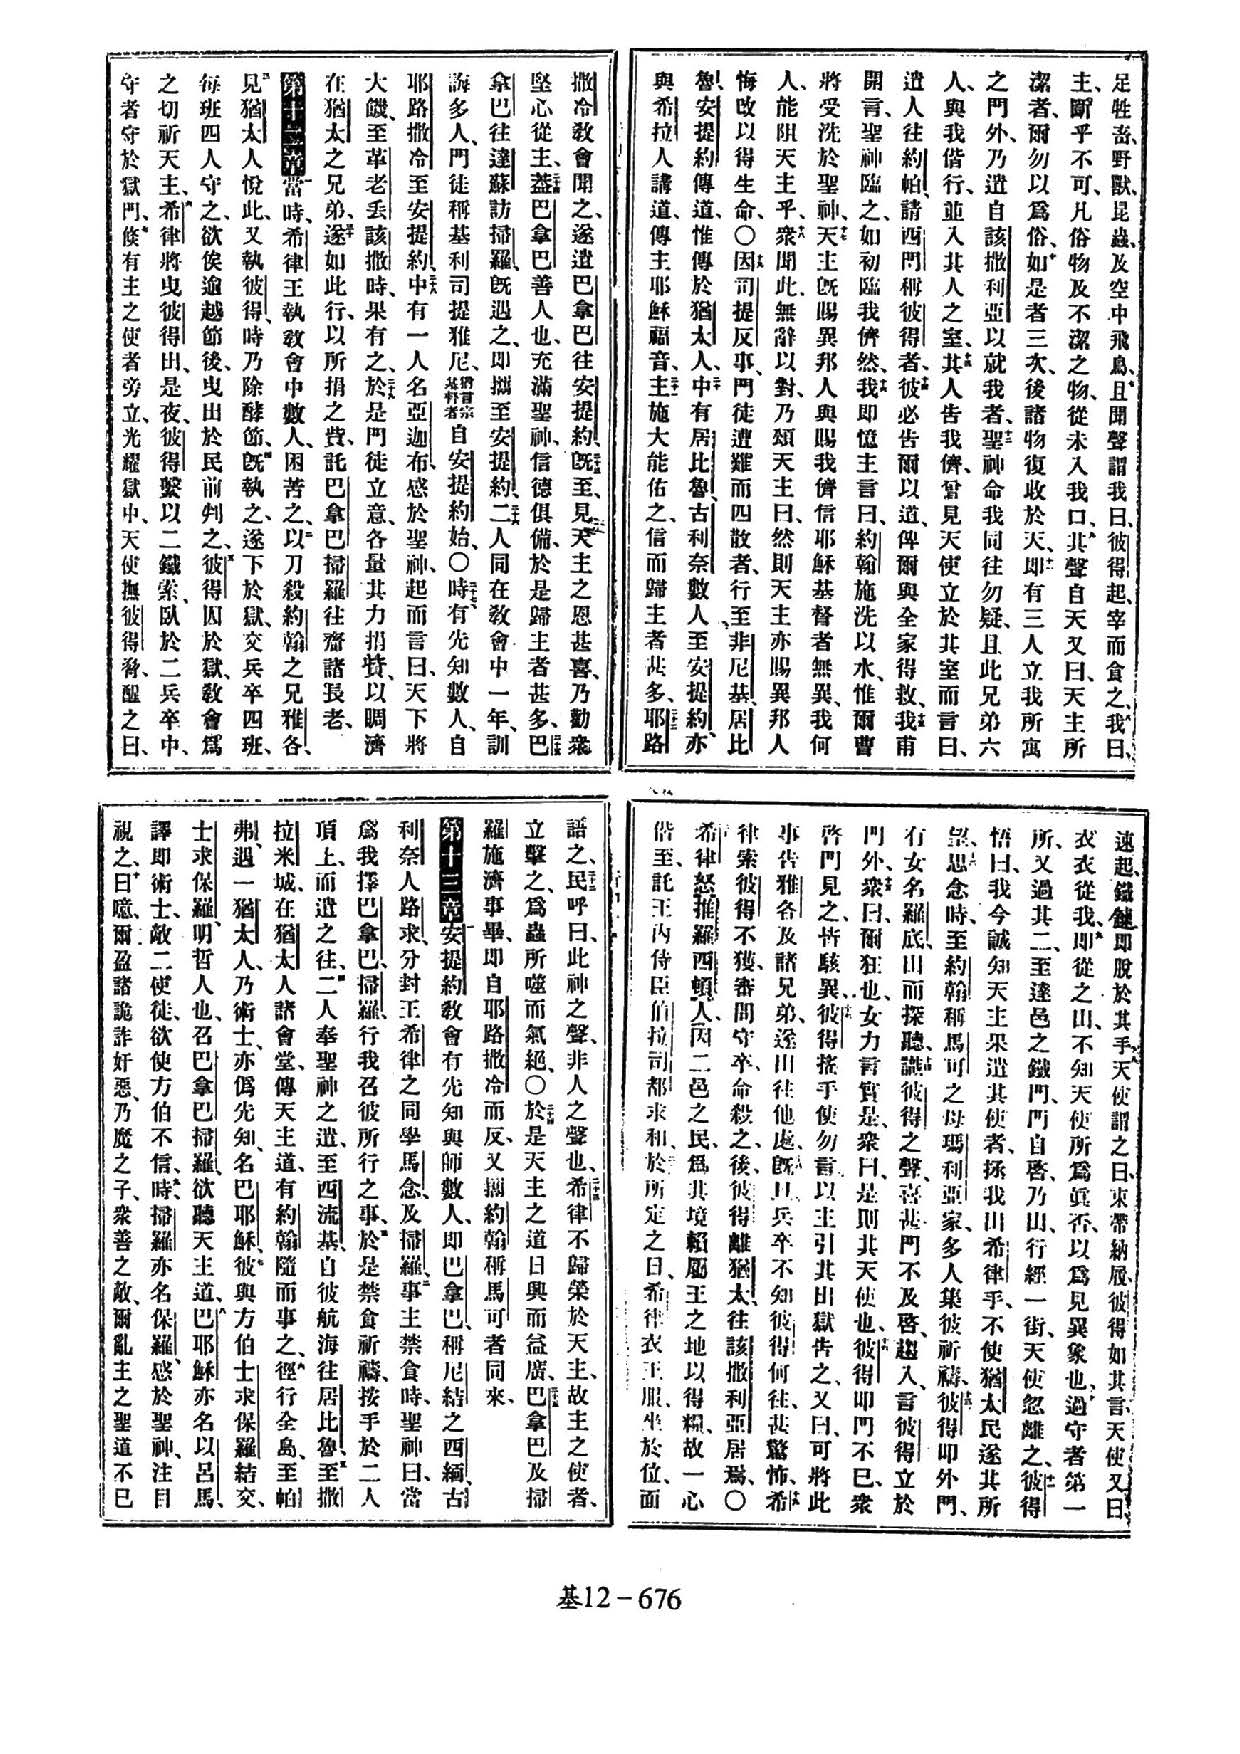 足牲畜、野獸、昆蟲、及空中飛鳥、且聞聲謂我曰、彼得起、宰而食之、我曰、
主、斷乎不可、凡俗物及不潔之物、從未入我口、其聲自天又曰、天主所
潔者、爾勿以爲俗、如是者三次、後諸物復收於天、即有三人立我所寓
之門外、乃遣自該撒利亞以就我者、聖神命我同往勿疑、且此兄弟六
人、與我偕行、並入其人之室、其人告我儕、曾見天使立於其室而言曰、
遣人往約帕、請西門稱彼得者、彼必告爾以道、俾爾與全家得救、我甫
開言、聖神臨之、如初臨我儕然、我即憶主言曰、約翰施洗以水、惟爾曹
將受洗於聖神、天主旣賜異邦人與賜我儕信耶穌基督者無異、我何
人、能阻天主乎、衆聞此、無辭以對、乃頌天主曰、然則天主亦賜異邦人
悔改以得生命、〇因司提反事、門徒遭難而四散者、行至非尼基、居比
魯、安提約傳道、惟傳於猶太人、中有居比魯、古利奈數人、至安提約、亦
與希拉人講道、傳主耶穌福音、主施大能佑之、信而歸主者甚多、耶路
撒冷敎會聞之、遂遣巴拿巴往安提約、旣至、見天主之恩甚喜、乃勸衆
堅心從主、蓋巴拿巴善人也、充滿聖神、信德俱備、於是歸主者甚多、巴
拿巴往達蘇訪掃羅、旣遇之、即攜至安提約、二人同在敎會中一年、訓
誨多人、門徒稱基利司提雅尼、猶言宗基督者自安提約始、〇時有先知數人、自
耶路撒冷至安提約、中有一人名亞迦布、感於聖神、起而言曰、天下將
大饑、至革老丢該撒時、果有之、於是門徒立意、各量其力捐貲、以賙濟
在猶太之兄弟、遂如此行、以所捐之貲、託巴拿巴掃羅往齎諸長老、
第十二章當時、希律王執敎會中數人、困苦之、以刀殺約翰之兄雅各、
見猶太人悅此、又執彼得、時乃除酵節、旣執之、遂下於獄、交兵卒四班、
每班四人守之、欲俟逾越節後、曳出於民前判之、彼得囚於獄、敎會爲
之切祈天主、希律將曳彼得出、是夜、彼得繫以二鐵索、臥於二兵卒中、
守者守於獄門、倏有主之使者旁立、光耀獄中、天使撫彼得脅、醒之曰、
速起、鐵鏈即脫於其手、天使謂之曰、束帶納履、彼得如其言、天使又曰、
衣衣從我、即從之出、不知天使所爲眞否、以爲見異象也、過守者第一
所、又過其二、至達邑之鐵門、門自啓、乃出、行經一街、天使忽離之、彼得
悟曰、我今誠知天主果遣其使者、拯我出希律手、不使猶太民遂其所
望、思念時、至約翰稱馬可之母瑪利亞家、多人集彼祈禱、彼得叩外門、
有女名羅底、出而探聽、識彼得之聲、喜甚、門不及啓、趨入言彼得立於
門外、衆曰、爾狂也、女力言實是、衆曰、是則其天使也、彼得叩門不已、衆
啓門見之、皆駭異、彼得搖手使勿言、以主引其出獄告之、又曰、可將此
事告雅各及諸兄弟、遂出往他處、旣旦、兵卒不知彼得何往、甚驚怖、希
律索彼得不獲、審問守卒、命殺之、後彼得離猶太、往該撒利亞居焉、〇
希律怒推羅西頓人、因二邑之民、爲其境賴屬王之地以得糧、故一心
偕至、託王內侍臣伯拉司都求和、於所定之日、希律衣王服、坐於位、面
語之、民呼曰、此神之聲、非人之聲也、希律不歸榮於天主、故主之使者、
立擊之、爲蟲所噬而氣絕、〇於是天主之道日興而益廣、巴拿巴及掃
羅施濟事畢、即自耶路撒冷而反、又攜約翰稱馬可者同來、
第十三章安提約敎會有先知與師數人、即巴拿巴、稱尼結之西緬、古
利奈人路求、分封王希律之同學馬念、及掃羅、事主禁食時、聖神曰、當
爲我擇巴拿巴、掃羅、行我召彼所行之事、於是禁食祈禱、按手於二人
頂上、而遣之往、二人奉聖神之遣、至西流基、自彼航海往居比魯、至撒
拉米城、在猶太人諸會堂、傳天主道、有約翰隨而事之、徑行全島、至帕
弗、遇一猶太人、乃術士、亦僞先知、名巴耶穌、彼與方伯士求保羅結交、
士求保羅、明哲人也、召巴拿巴掃羅、欲聽天主道、巴耶穌亦名以呂馬、
譯即術士、敵二使徒、欲使方伯不信、時掃羅亦名保羅、感於聖神、注目
視之、曰、噫、爾盈諸詭詐奸惡、乃魔之子、衆善之敵、爾亂主之聖道不已
基12－676